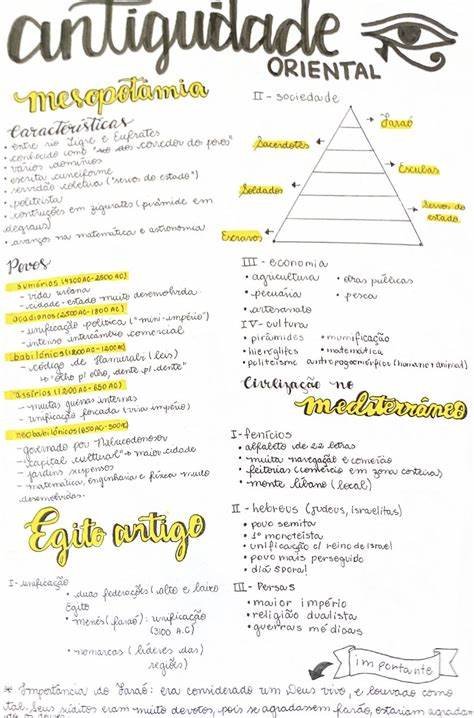 antiguidade
ORIENTAL
mesopotâmia
Características
• entre rio Tigre e Eufrates
• conhecido como "corredor dos povos"
• vários domínios
• escrita cuneiforme
• servidão coletiva ("servos do estado")
• politeísta
• contruções em zigurates (pirâmide em
degraus)
• avanços na matemática e astronomia
Povos
sumérios (4000AC-2500 AC)
- vida urbana
- cidade-estado muito desenvolvida
acadianos (2500AC-1800 AC)
- unificação política ("mini-império")
- intenso intercâmbio comercial
babilônios (1800AC-1200AC)
- código de Hamurabi (leis)
↳ "olho p/ olho, dente p/ dente"
assírios (1200AC-650 AC)
- muitas guerras internas
- unificação forçada (cria império)
neobabilônios (650AC-500AC)
- governado por Nabucodonosor
- "capital cultural" → maior cidade
- jardins suspensos
- matemática, engenharia e física muito
desenvolvidas.
Egito antigo
I- unificação
• duas federações (alto e baixo
Egito
• menés (faraó): unificação
(3100 A.C)
• nomarcas (líderes das
regiões)
II - sociedade
Faraó
Sacerdotes
Escribas
Soldados
Servos do
estado
Escravos
III - economia
• agricultura • obras públicas
• pecuária • pesca
• artesanato
IV- cultura
• pirâmides • mumificação
• hieroglifos • matemática
• politeísmo antropogomórfico (humano + animal)
Civilização no
mediterrâneo
I- fenícios
• alfabeto de 22 letras
• muita navegação e comércio
• feitorias (comércio em zona costeira)
• monte líbano (local)
II - hebreus (judeus, israelitas)
• povo semita
• 1º monoteísta
• unificação c/ reino de Israel
• povo mais perseguido
• diáspora!
III - Persas
• maior império
• religião dualista
• guerras médicas
importante
* Importância do Faraó: era considerado um Deus vivo, e louvado como
tal. Seus súditos eram muito devotos, pois se agradassem faraó, estariam agradan